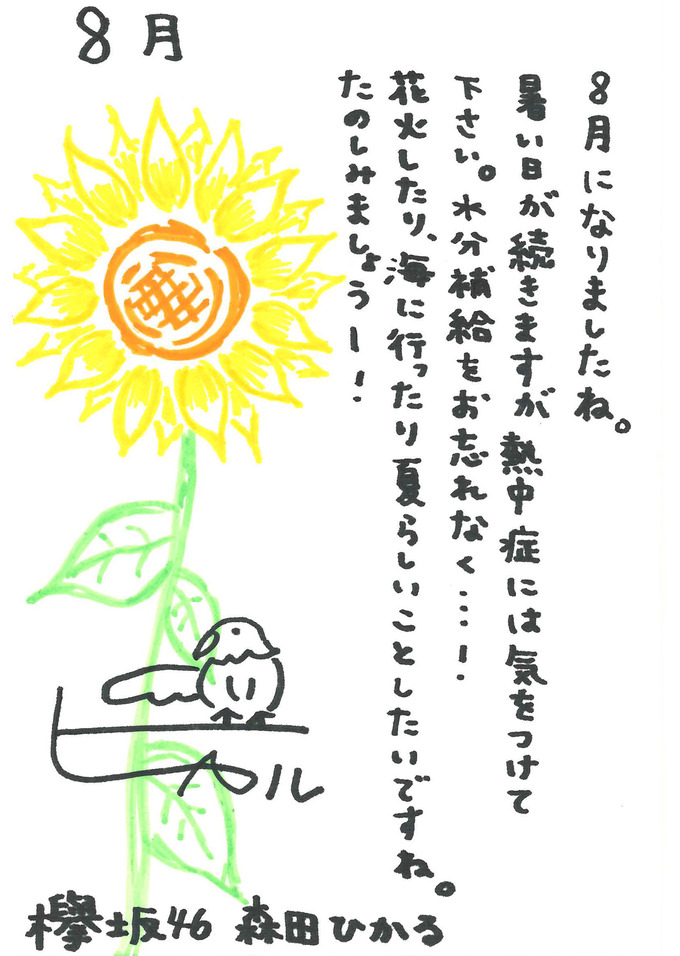 8月
8月になりましたね。
暑い日が続きますが熱中症には気をつけて
下さい。水分補給をお忘れなく…!
花火したり、海に行ったり夏らしいことしたいですね。
たのしみましょうー!
ヒカル
欅坂46 森田ひかる